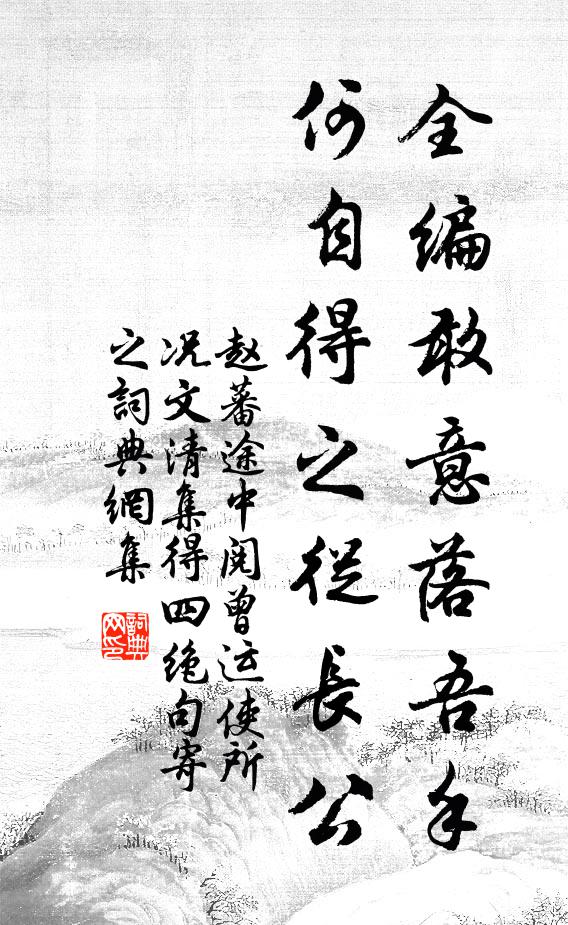 全編敢意落吾手
何自得之從長公
赵蕃途中閱曾运使所
况文清集得四绝句寄
之詞典網集
詞典網印